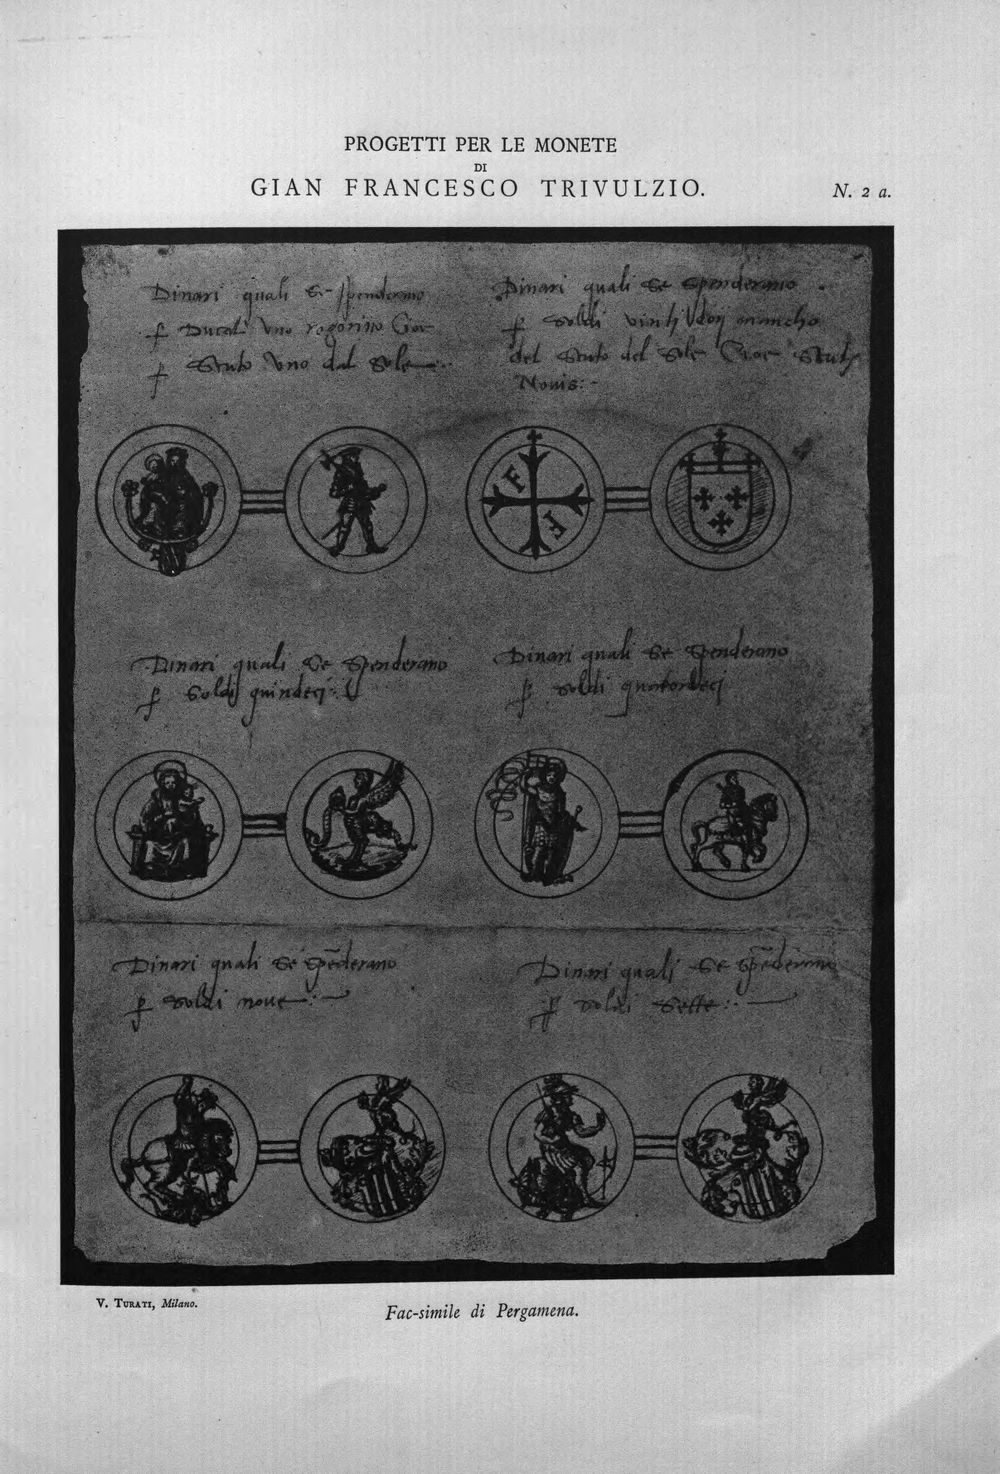 PROGETTI PER LE MONETE
DI
GIAN FRANCESCO TRIVULZIO.
N. 2 a.
Dinari quali Se spenderano
ꝑ Ducati Uno rogorino Cioe
ꝑ Scuto Uno dal Sole
Dinari quali Se Spenderano
ꝑ Soldi vinti mancho
del Scuto del Sole Cioe Scuti
Novis:-
F
F
Dinari quali Se Spenderano
ꝑ Soldi quindeci:
Dinari quali Se Spenderano
ꝑ Soldi quatordeci
Dinari quali Se Spēderano
ꝑ Soldi nove:
Dinari quali Se Spēderano
ꝑ Soldi Sette:
V. TURATI, Milano.
Fac-simile di Pergamena.